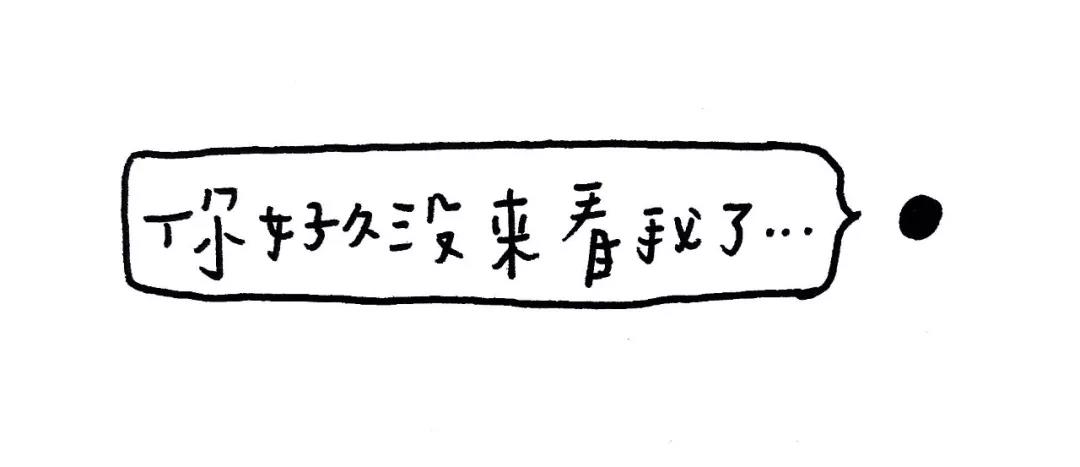 你好久没来看我了...